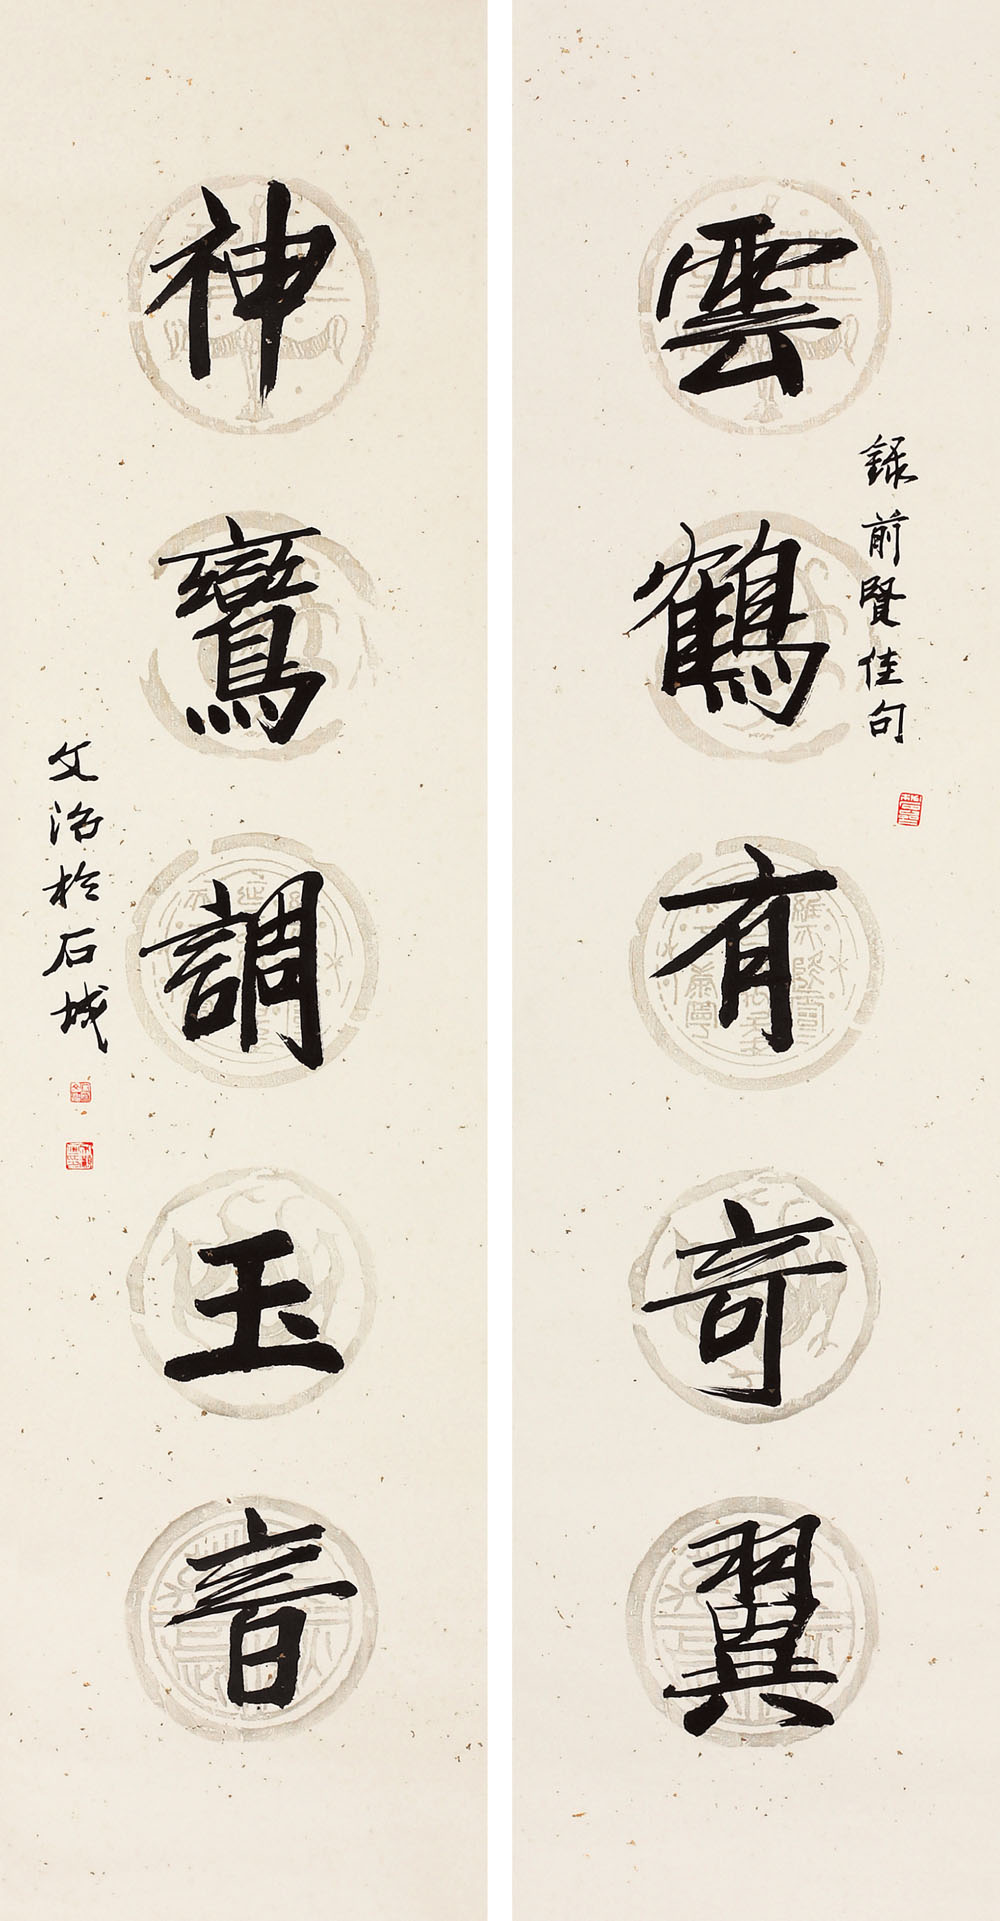 雲鶴有奇翼
録前賢佳句
神鸞調玉音
文治於石城